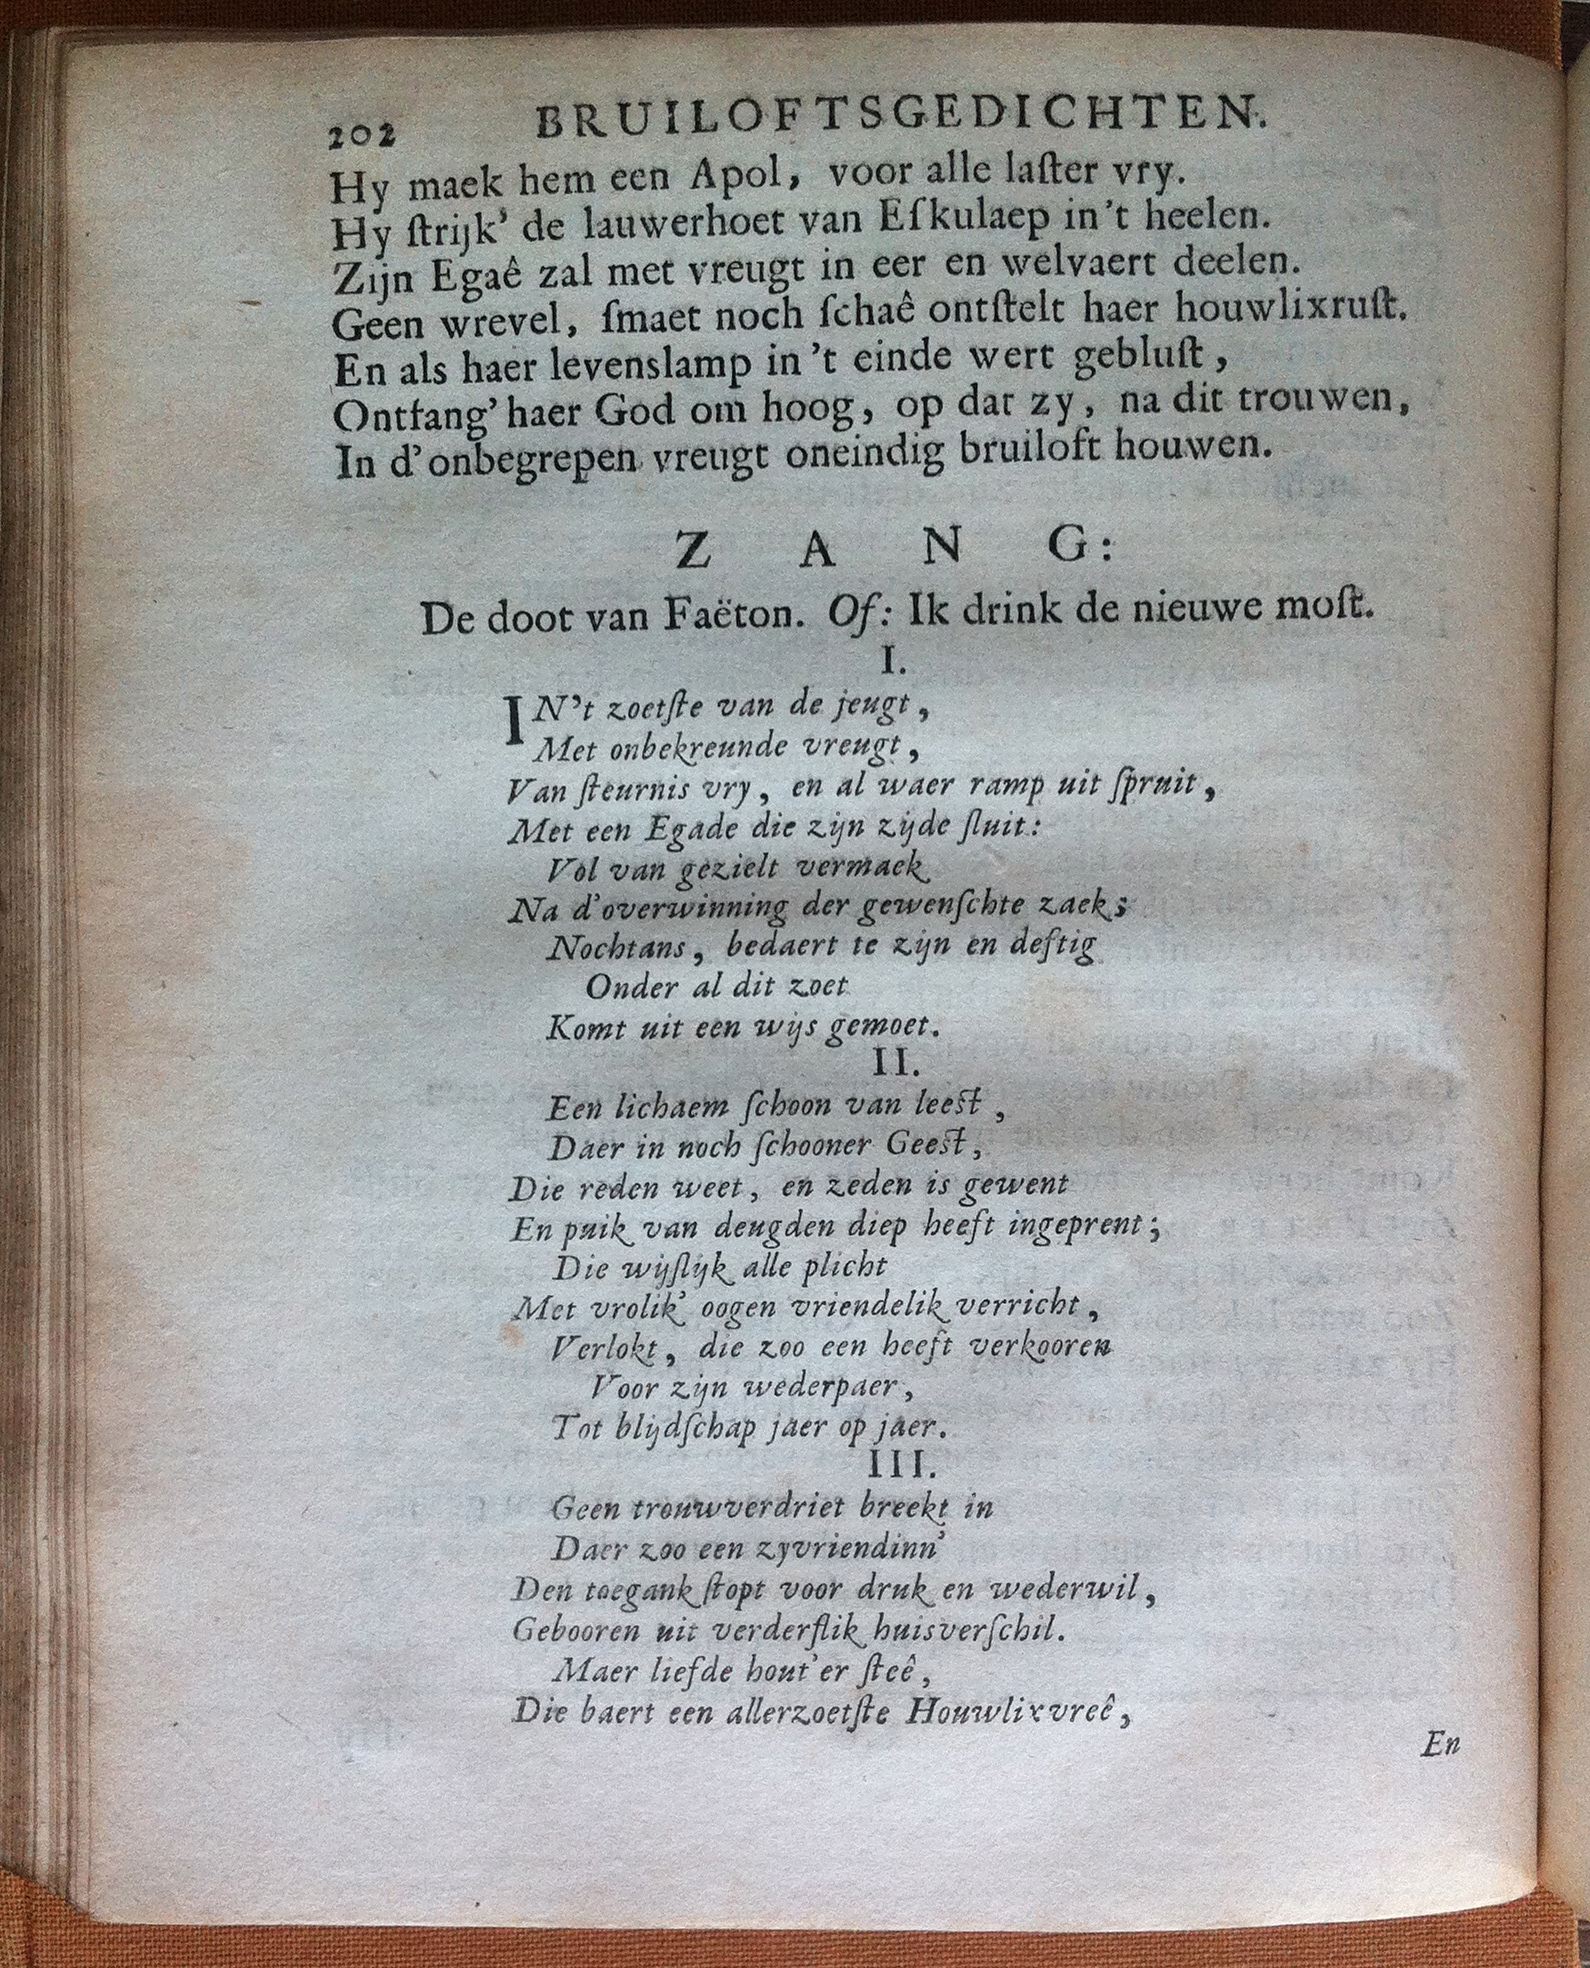 202 BRUILOFTSGEDICHTEN.
Hy maek hem een Apol, voor alle laſter vry.
Hy ſtrijk' de lauwerhoet van Eſkulaep in't heelen.
Zijn Egaê zal met vreugt in eer en welvaert deelen.
Geen wrevel, ſmaet noch ſchaê ontſtelt haer houwlixruſt.
En als haer levenslamp in 't einde wert gebluſt,
Ontfang' haer God om hoog, op dat zy, na dit trouwen,
In d'onbegrepen vreugt oneindig bruiloft houwen.
Z A N G:
De doot van Faëton. Of: Ik drink de nieuwe moſt.
I.
IN't zoetſte van de jeugt,
Met onbekreunde vreugt,
Van ſteurnis vry, en al waer ramp uit ſpruit,
Met een Egade die zijn zijde ſluit:
Vol van gezielt vermaek
Na d'overwinning der gewenſchte zaek;
Nochtans, bedaert te zijn en deftig
Onder al dit zoet
Komt uit een wijs gemoet.
II.
Een lichaem ſchoon van leeſt,
Daer in noch ſchooner Geeſt,
Die reden weet, en zeden is gewent
En puik van deugden diep heeft ingeprent;
Die wijſlijk alle plicht
Met vrolik' oogen vriendelik verricht,
Verlokt, die zoo een heeft verkooren
Voor zijn wederpaer,
Tot blijdſchap jaer op jaer.
III.
Geen trouwverdriet breekt in
Daer zoo een zyvriendinn'
Den toegank ſtopt voor druk en wederwil,
Gebooren uit verderflik huisverſchil.
Maer liefde hout'er ſteê,
Die baert een allerzoetſte Houwlixvreê,
En